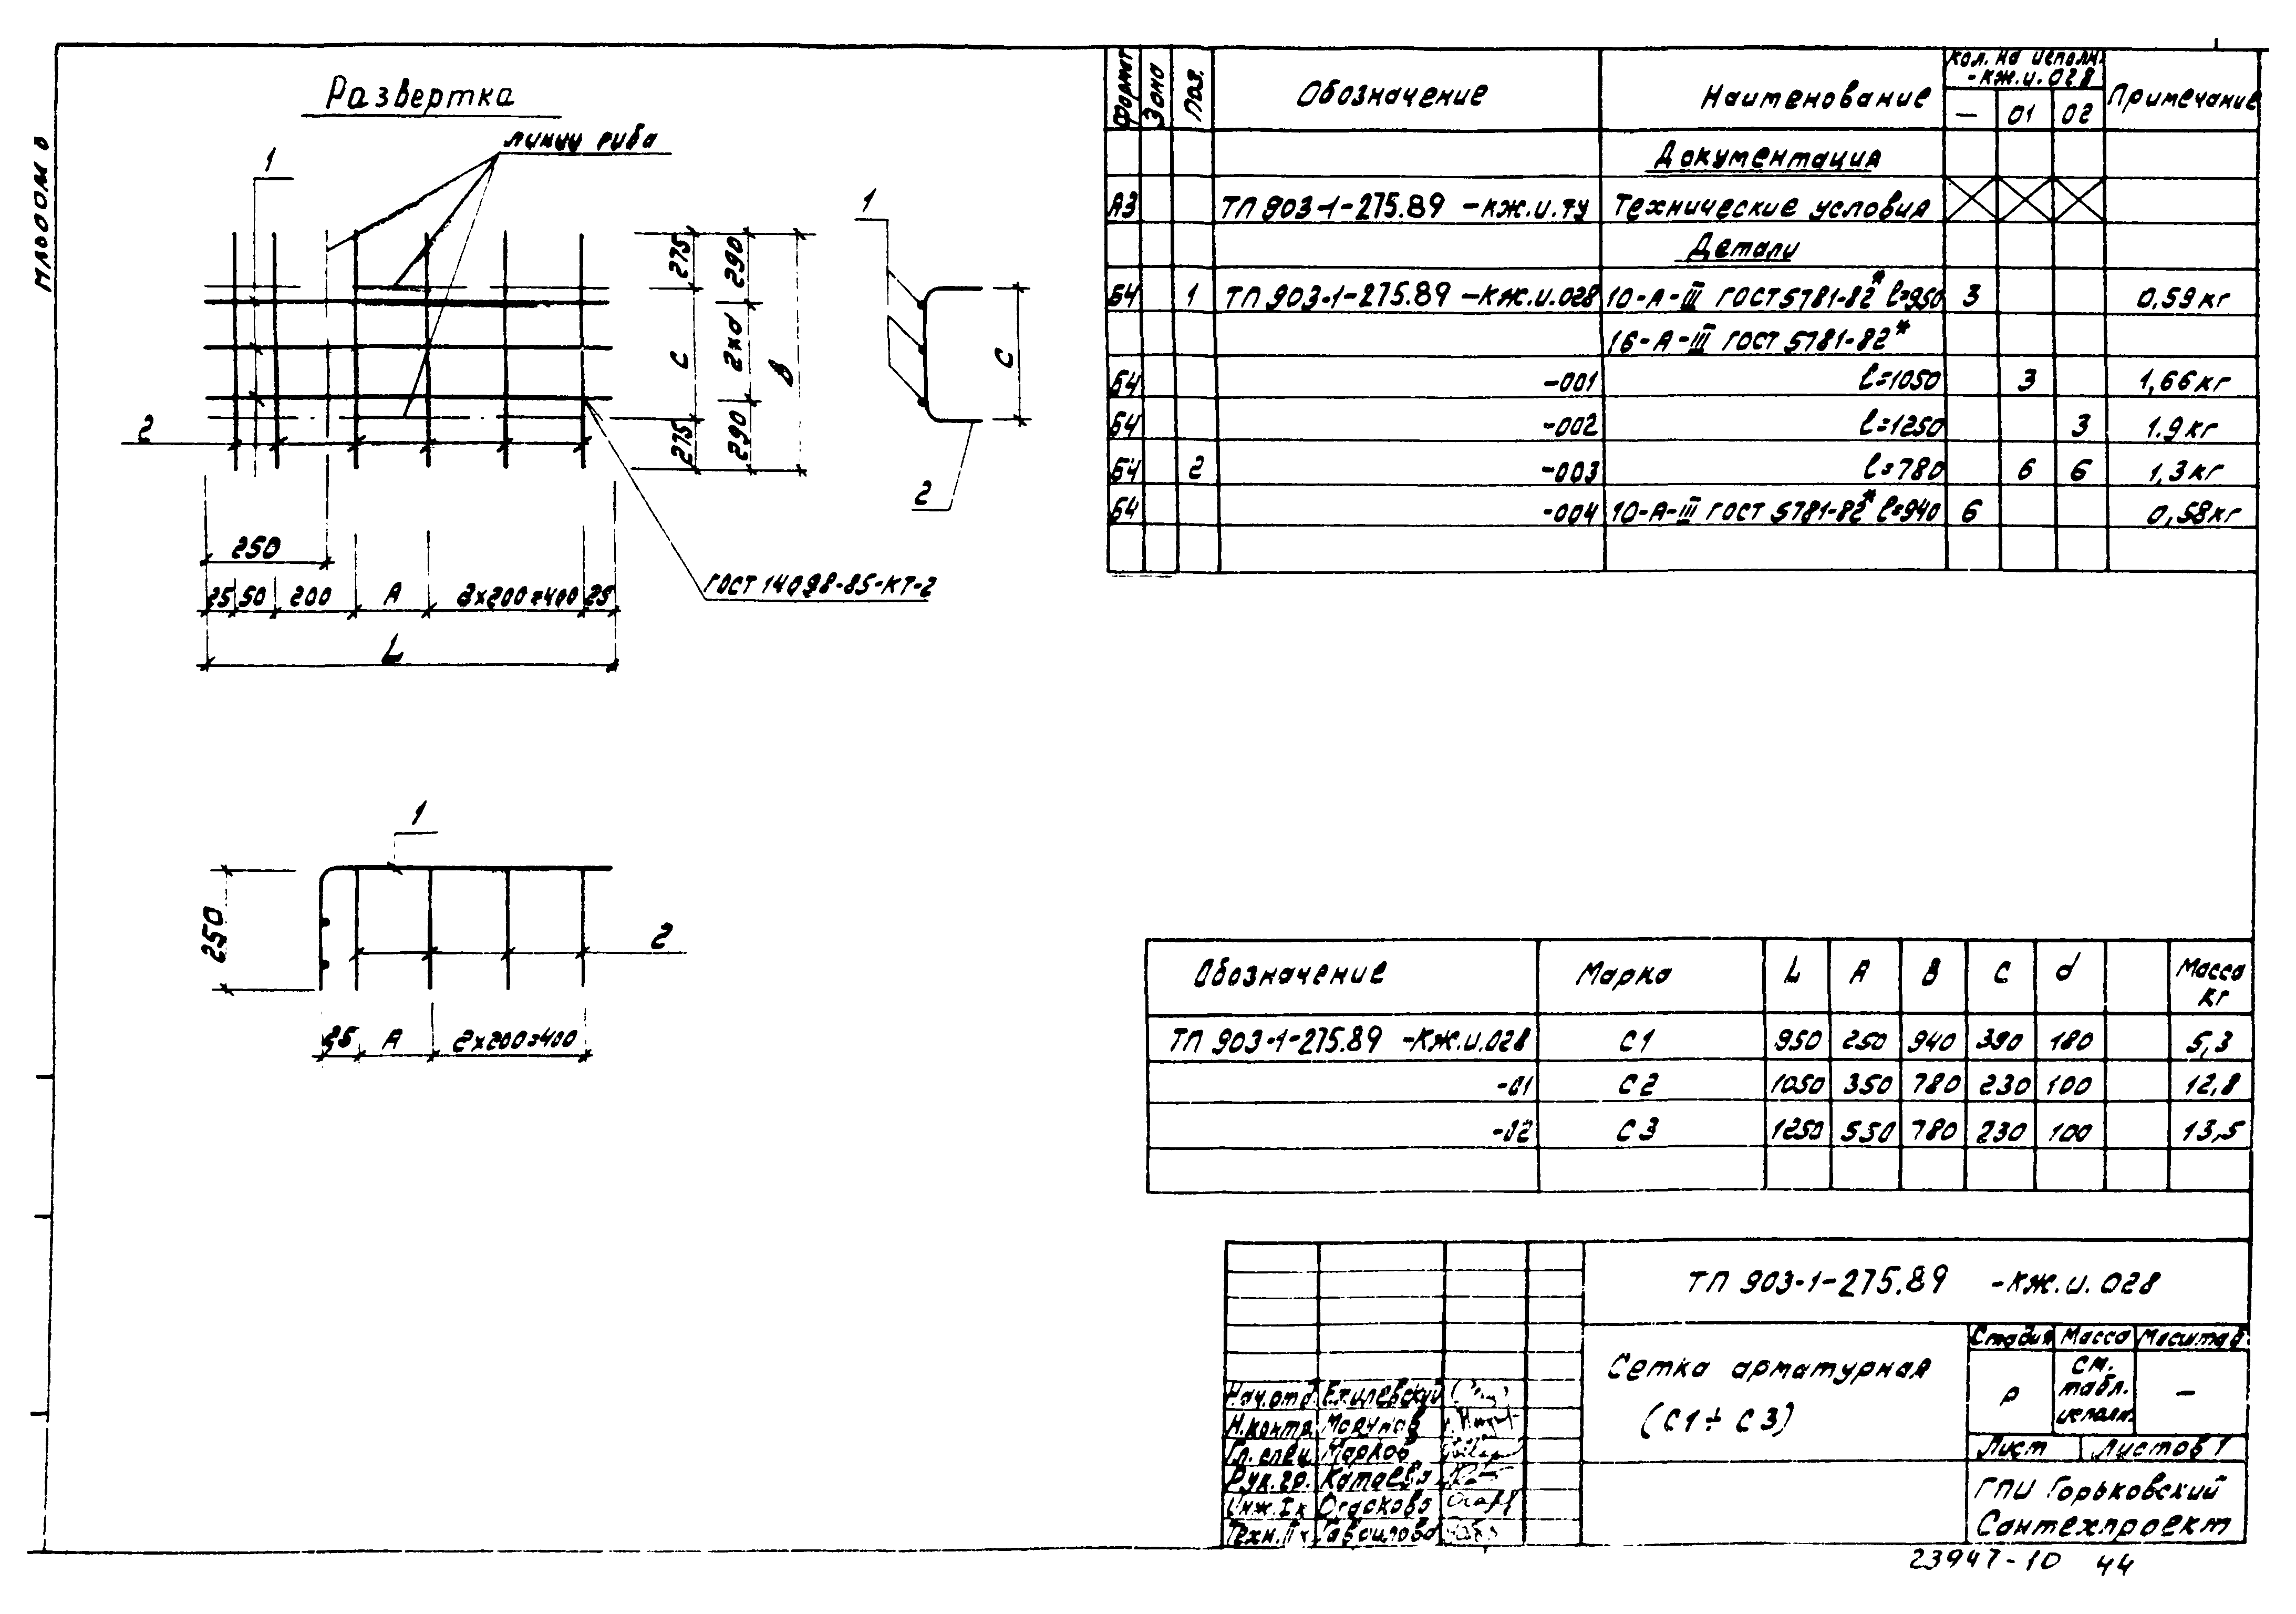 Альбом 8
Развертка
линии гиба
1
2
275
290
C
2×d
B
275
290
250
25 50 200 A 2×200=400 25
L
ГОСТ 14098-85-КТ-2
1
C
2
1
250
2
25 A 2×200=400
Формат Зона Поз. Обозначение Наименование Кол. на исполн. -КЖ.И.028 Примечание
— 01 02
Документация
А3 ТП 903-1-275.89 -КЖ.И.ТУ Технические условия
Детали
Б4 1 ТП 903-1-275.89 -КЖ.И.028 10-А-III ГОСТ 5781-82* ℓ=950 3 0,59 кг
16-А-III ГОСТ 5781-82*
Б4 -001 ℓ=1050 3 1,66 кг
Б4 -002 ℓ=1250 3 1.9 кг
Б4 2 -003 ℓ=780 6 6 1,3 кг
Б4 -004 10-А-III ГОСТ 5781-82* ℓ=940 6 0,58 кг
Обозначение Марка L A B C d Масса кг
ТП 903-1-275.89 -КЖ.И.028 С1 950 250 940 390 180 5,3
-01 С2 1050 350 780 230 100 12,8
-02 С3 1250 550 780 230 100 13,5
ТП 903-1-275.89 -КЖ.И.028
Сетка арматурная
(С1÷С3)
Стадия Масса Масштаб
Р см. табл. исполн. —
Лист Листов 1
ГПИ Горьковский
Сантехпроект
Нач.отд.
Н.контр.
Гл.спец. Марков
Рук.гр. Катаева
Инж.I к
Техн.II к Гаврилова
23947-10 44